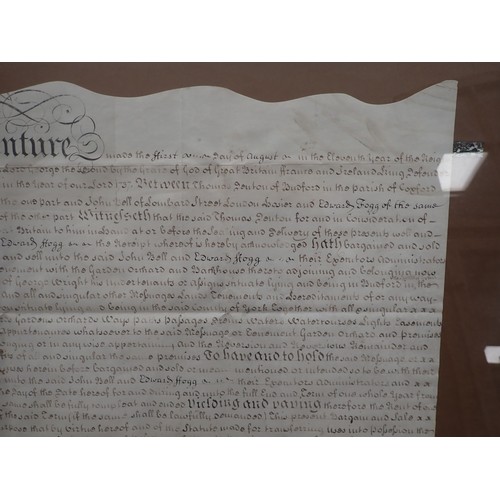 nture made the ffirst Day of August in the Eleventh Year of the Reig
George the Second by the Grace of God of Great Britain ffrance and Ireland King Defend
in the Year of our Lord Between Thomas Denton of in the parish of
the one part and John Noll of Lombard Street London and Edward ffogg of the same
of the other part Witnesseth that the said Thomas Denton for and in Consideration of
Britain to him in hand at or before the Sealing and Delivery of these presents well and
Edward ffogg the Receipt whereof is hereby acknowledged Hath bargained and sold
and sell unto the said John Noll and Edward ffogg their Executors Administrators
with the Garden Orchard and Backhouse thereto adjoining and belonging now
of George Wright his undertenants or assigns situate lying and being in
and all and singular other Messuages Lands Tenements and Hereditaments of or any way
situate lying and being in the said County of York Together with all and singular
Gardens Orchards Ways paths Passages Waters Watercourses Lights Easements
Appurtenances whatsoever to the said Messuage or Tenement Garden Orchard and premises
or in any wise appertaining and the Reversion and Reversions Remainder and
of all and singular the same premises To have and to hold the said Messuage or
herein before bargained and sold or mentioned or intended so to be with their
unto the said John Noll and Edward ffogg their Executors Administrators and
the Day of the Date hereof for and during and unto the full End and Term of one whole Year from
shall be fully compleat and ended Yielding and paying therefore the Rent of one
the said Term if the same shall be lawfully demanded This present Bargain and Sale
that by Virtue hereof and of the Statute made for transferring uses into possession the